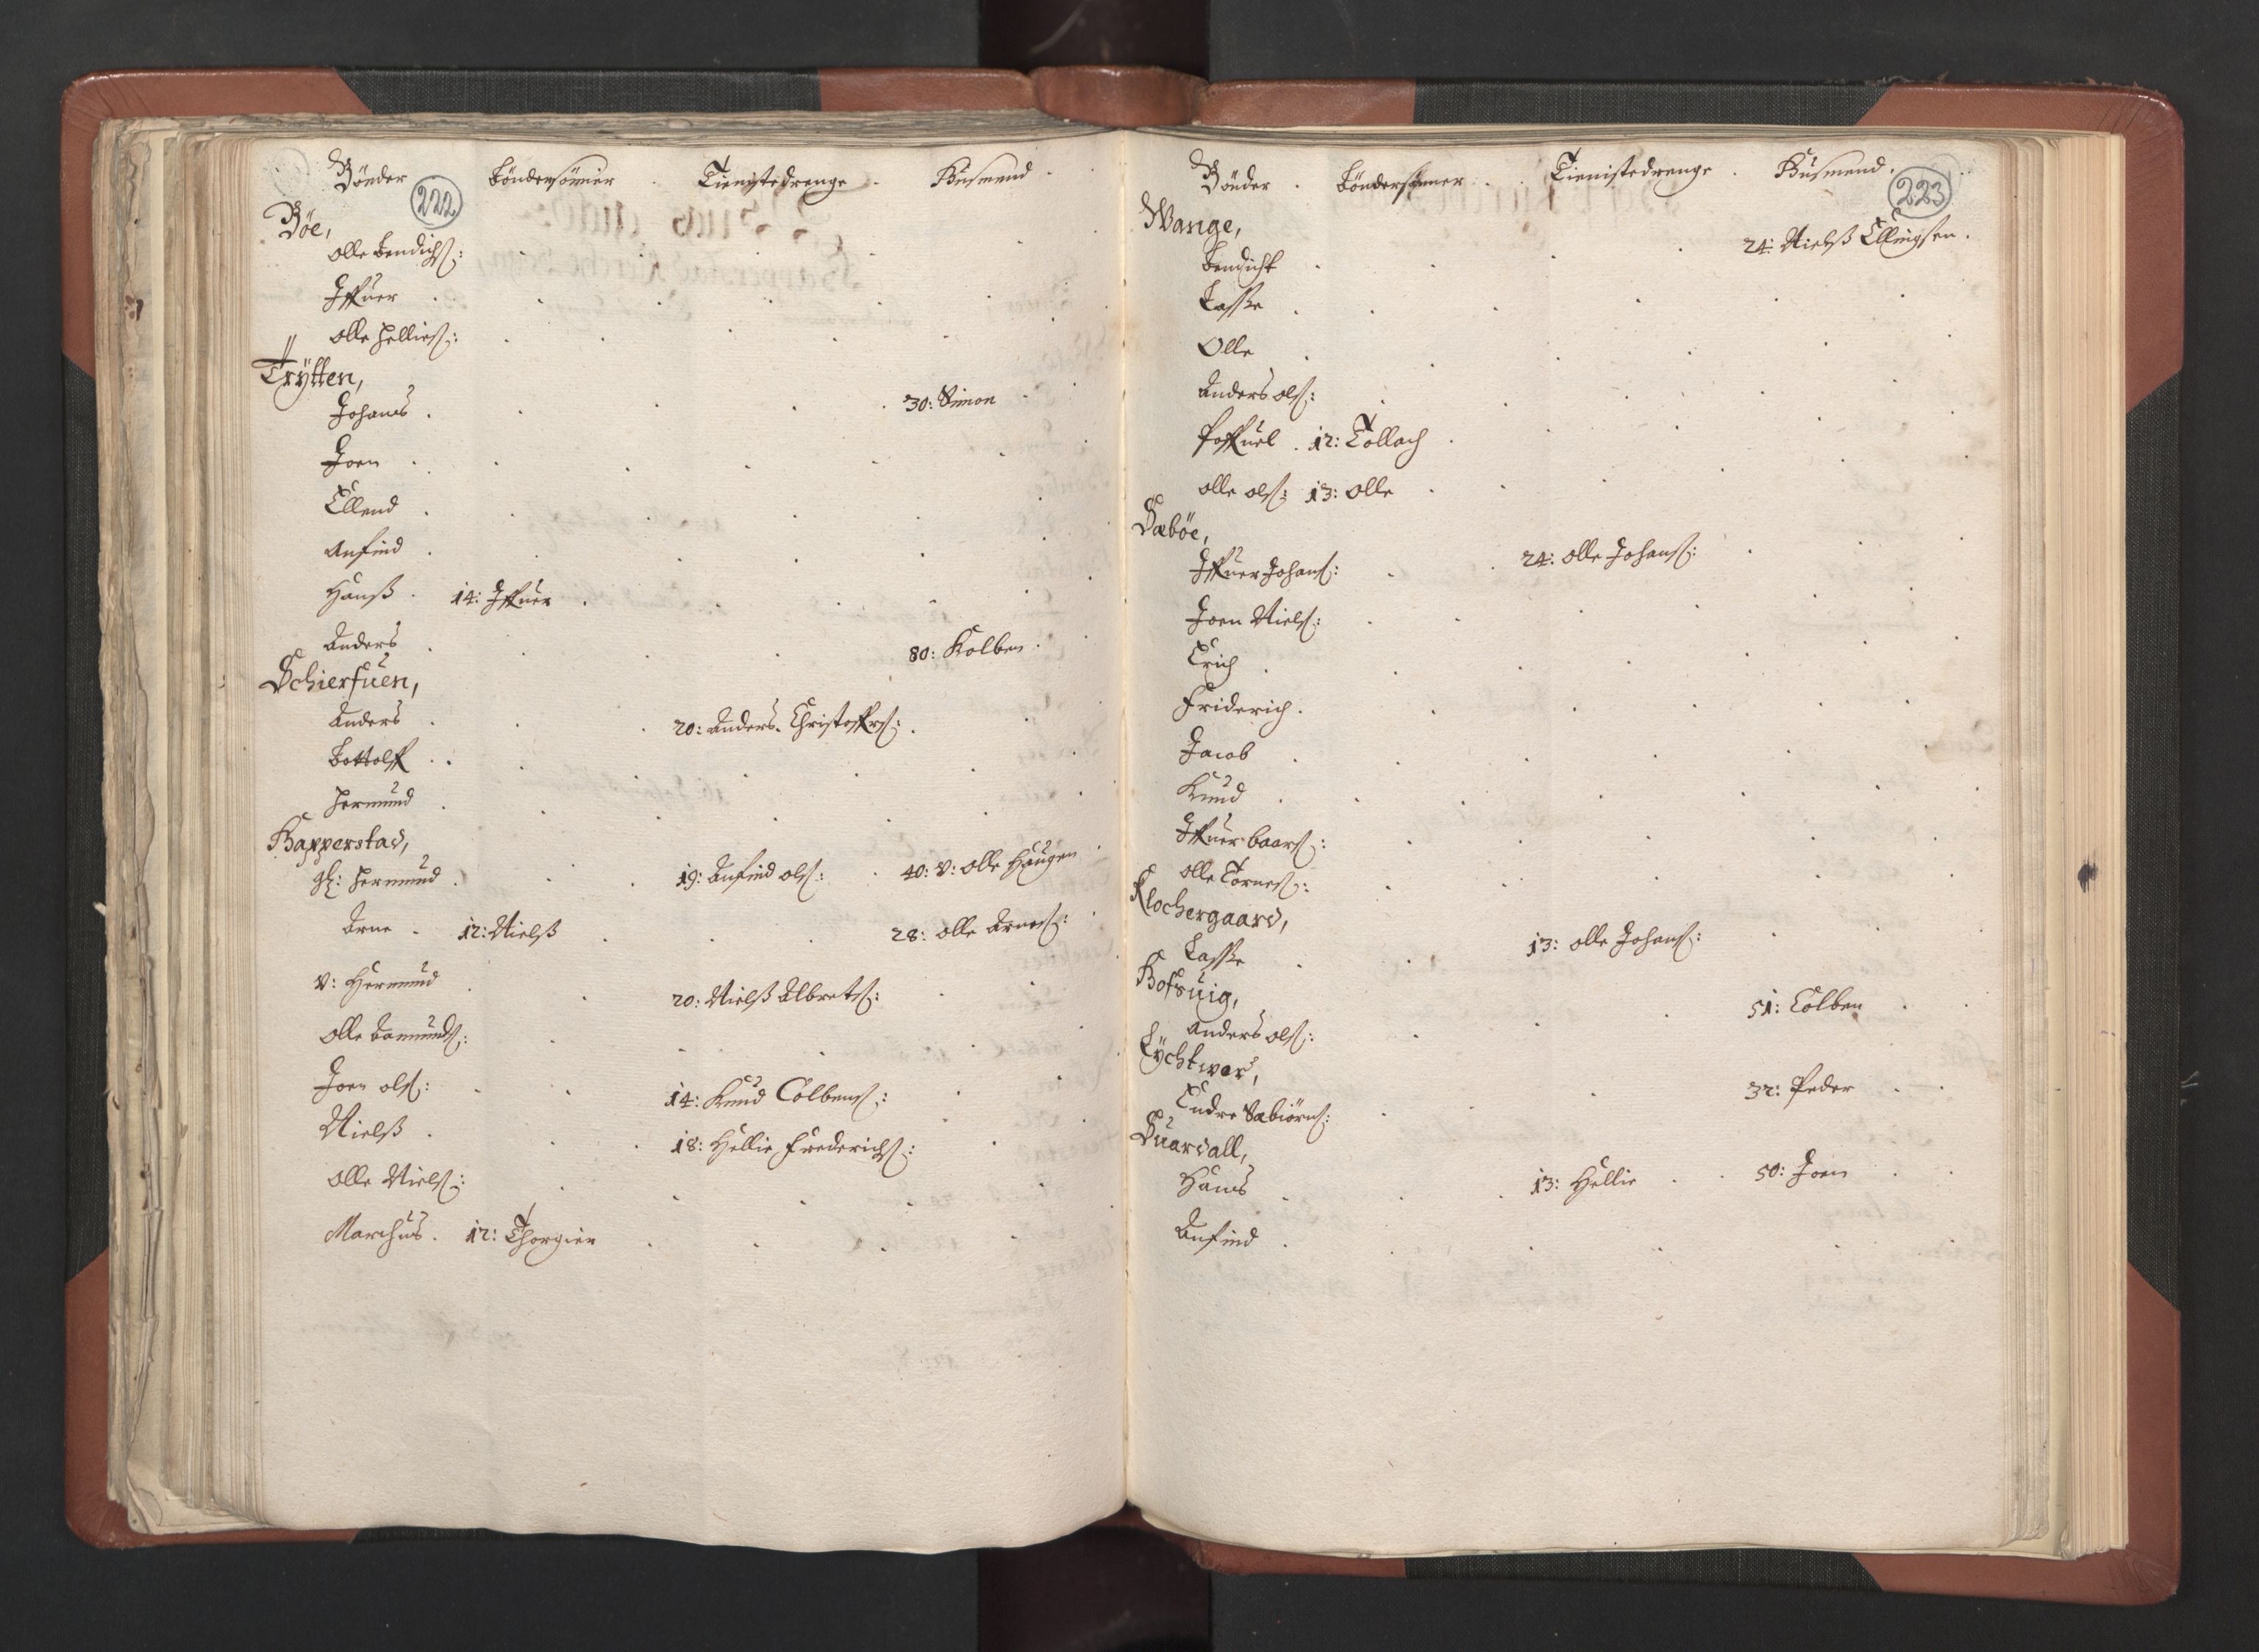 Bönder Böndersönner Tienistedrenge Husmend
222
Böe,
Olle Bendichs:
Iffuer
Olle Hellies:
Trÿtten,
Johanes 30: Simon
Joen
Ellend
Anfind
Hanß 14: Iffuer
Anders 80: Kolben
Schierfuen,
Anders 20: Anders Christoffers:
Bottolff
Hermund
Happerstad,
gl: Hermund 19: Anfind ols: 40: V: Olle Haugen
Arne 12: Nielß 28: Olle Arnes:
V: Hermund 20: Nielß Albrets:
Olle Aamunds:
Joen ols:
14: Knud Colbens:
Nielß 18: Hellie Frederichs:
Olle Niels:
Marchus 12: Thorgier
Bönder Böndersönner Tienistedrenge Husmend
223
Wange,
Bendicht 24: Nielß Ellingsen
Lasse
Olle
Anders ols:
Poffuel 12: Tollach
Olle ols: 13: Olle
Sæböe,
Iffuer Johans: 24: Olle Johans:
Joen Niels:
Erich
Friderich
Jacob
Knud
Iffuer baars:
Olle Tornes:
Klochergaard,
Lasse 13: Olle Johans:
Hofsuig,
Anders ols: 51: Colben
Lÿchtwor,
Endre Sæbiörns: 32: Peder
Suardall,
Hanes 13: Hellie 50: Joen
Anfind